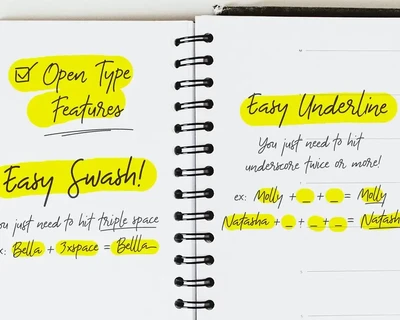 Open Type
Features
Easy Swash!
you just need to hit triple space
ex: Bella + 3xspace = Bellla
Easy Underline
You just need to hit
underscore twice or more!
ex: Molly + _ + _ = Molly
Natasha + _ + _ + _ = Natash